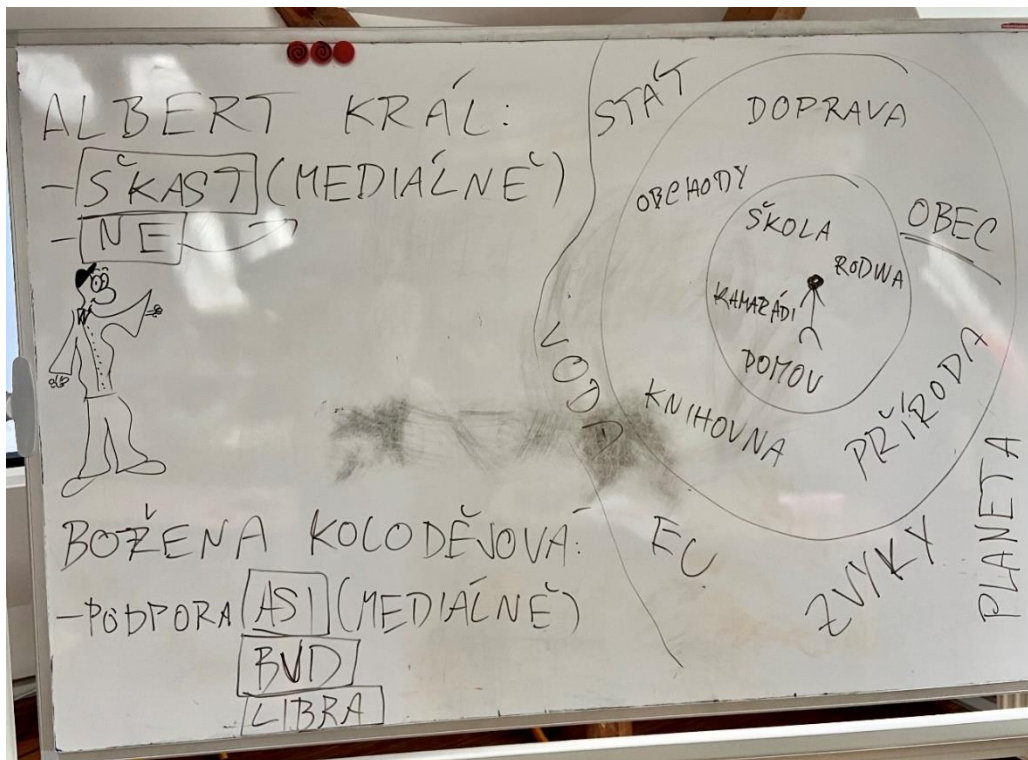 ALBERT KRÁL:
- ŠKAST (MEDIÁLNĚ)
- NE
BOŽENA KOLODĚJOVÁ:
- PODPORA ASI (MEDIÁLNĚ)
BVD
- LIBRA
STÁT
DOPRAVA
OBCHODY
OBEC
ŠKOLA
RODINA
KAMARÁDI
DOMOV
KNIHOVNA
PŘÍRODA
EU
ZVYKY
PLANETA